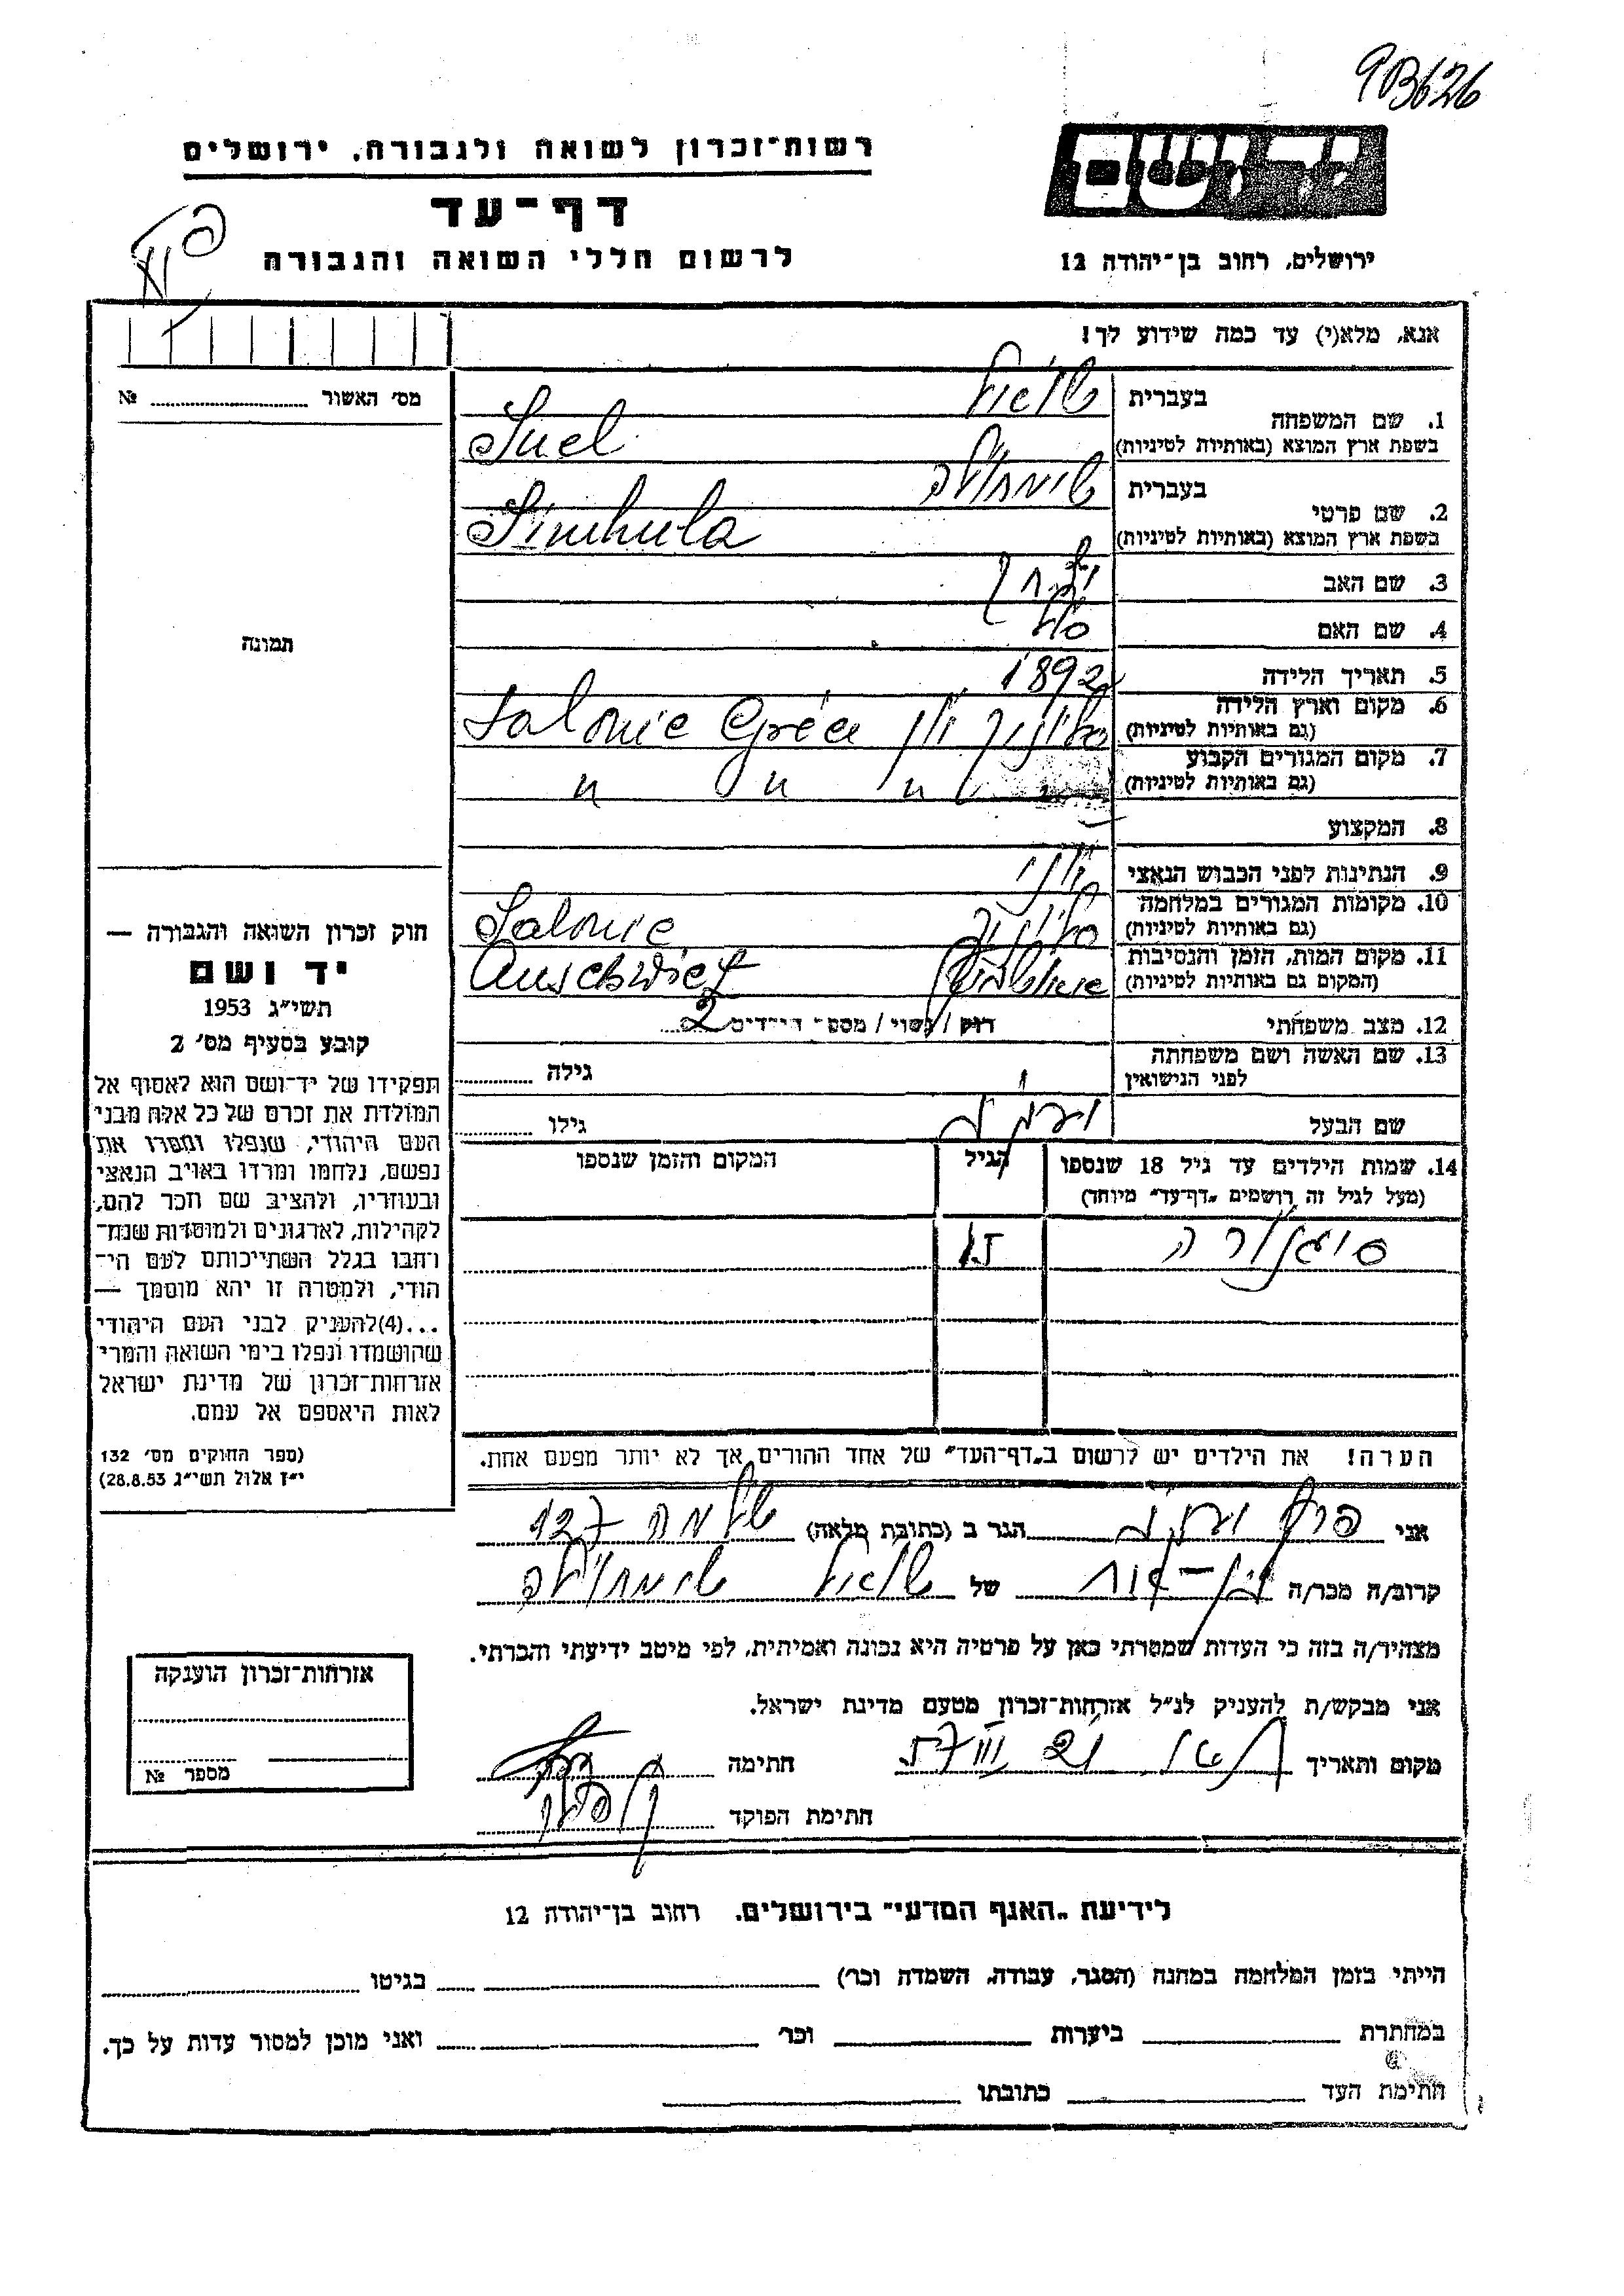 9B626
רשות־זכרון לשואה ולגבורה, ירושלים
יד ושם
דף־עד
לרשום חללי השואה והגבורה
ירושלים, רחוב בן־יהודה 12
אנא, מלא(י) עד כמה שידוע לך!
מס׳ האשור № 
1. שם המשפחה בעברית שואל
בשפת ארץ המוצא (באותיות לטיניות) Suel
2. שם פרטי בעברית שימחולה
בשפת ארץ המוצא (באותיות לטיניות) Simhula
3. שם האב יצחק
4. שם האם
5. תאריך הלידה 1892
6. מקום וארץ הלידה (גם באותיות לטיניות) סלוניק יון Salonic Grèce
7. מקום המגורים הקבוע (גם באותיות לטיניות) " " "
8. המקצוע
9. הנתינות לפני הכבוש הנאצי יוני
10. מקומות המגורים במלחמה (גם באותיות לטיניות) סלוניק Salonic
11. מקום המות, הזמן והנסיבות (המקום גם באותיות לטיניות) אושוויץ Auschwitz
12. מצב משפחתי רווק / נשוי / מספר הילדים 2
13. שם האשה ושם משפחתה לפני הנישואין גילה
שם הבעל גילו
14. שמות הילדים עד גיל 18 שנספו הגיל המקום והזמן שנספו
(מעל לגיל זה רושמים „דף־עד״ מיוחד)
סיגנורה
הערה! את הילדים יש לרשום ב„דף־העד״ של אחד ההורים אך לא יותר מפעם אחת.
תמונה
חוק זכרון השואה והגבורה —
יד ושם
תשי״ג 1953
קובע בסעיף מס׳ 2
תפקידו של יד־ושם הוא לאסוף אל
המולדת את זכרם של כל אלה מבני
העם היהודי, שנפלו ומסרו את
נפשם, נלחמו ומרדו באויב הנאצי
ובעוזריו, ולהציב שם וזכר להם,
לקהילות, לארגונים ולמוסדות שנח־
רבו בגלל השתייכותם לעם הי־
הודי, ולמטרה זו יהא מוסמך —
...(4)להעניק לבני העם היהודי
שהושמדו ונפלו בימי השואה והמרי
אזרחות־זכרון של מדינת ישראל
לאות היאספם אל עמם.
(ספר החוקים מס׳ 132
י״ז אלול תשי״ג 28.8.53)
אני הגר ב (כתובת מלאה) שלמה 127
קרוב/ה מכר/ה בן־אח של שואל שימחולה
מצהיר/ה בזה כי העדות שמסרתי כאן על פרטיה היא נכונה ואמיתית, לפי מיטב ידיעתי והכרתי.
אני מבקש/ת להעניק לנ״ל אזרחות־זכרון מטעם מדינת ישראל.
מקום ותאריך חתימה
חתימת הפוקד
אזרחות־זכרון הוענקה
מספר №
לידיעת „האגף המדעי״ בירושלים. רחוב בן־יהודה 12
הייתי בזמן המלחמה במחנה (הסגר, עבודה, השמדה וכו׳) בגיטו
במחתרת ביערות וכו׳ ואני מוכן למסור עדות על כך.
חתימת העד כתובתו